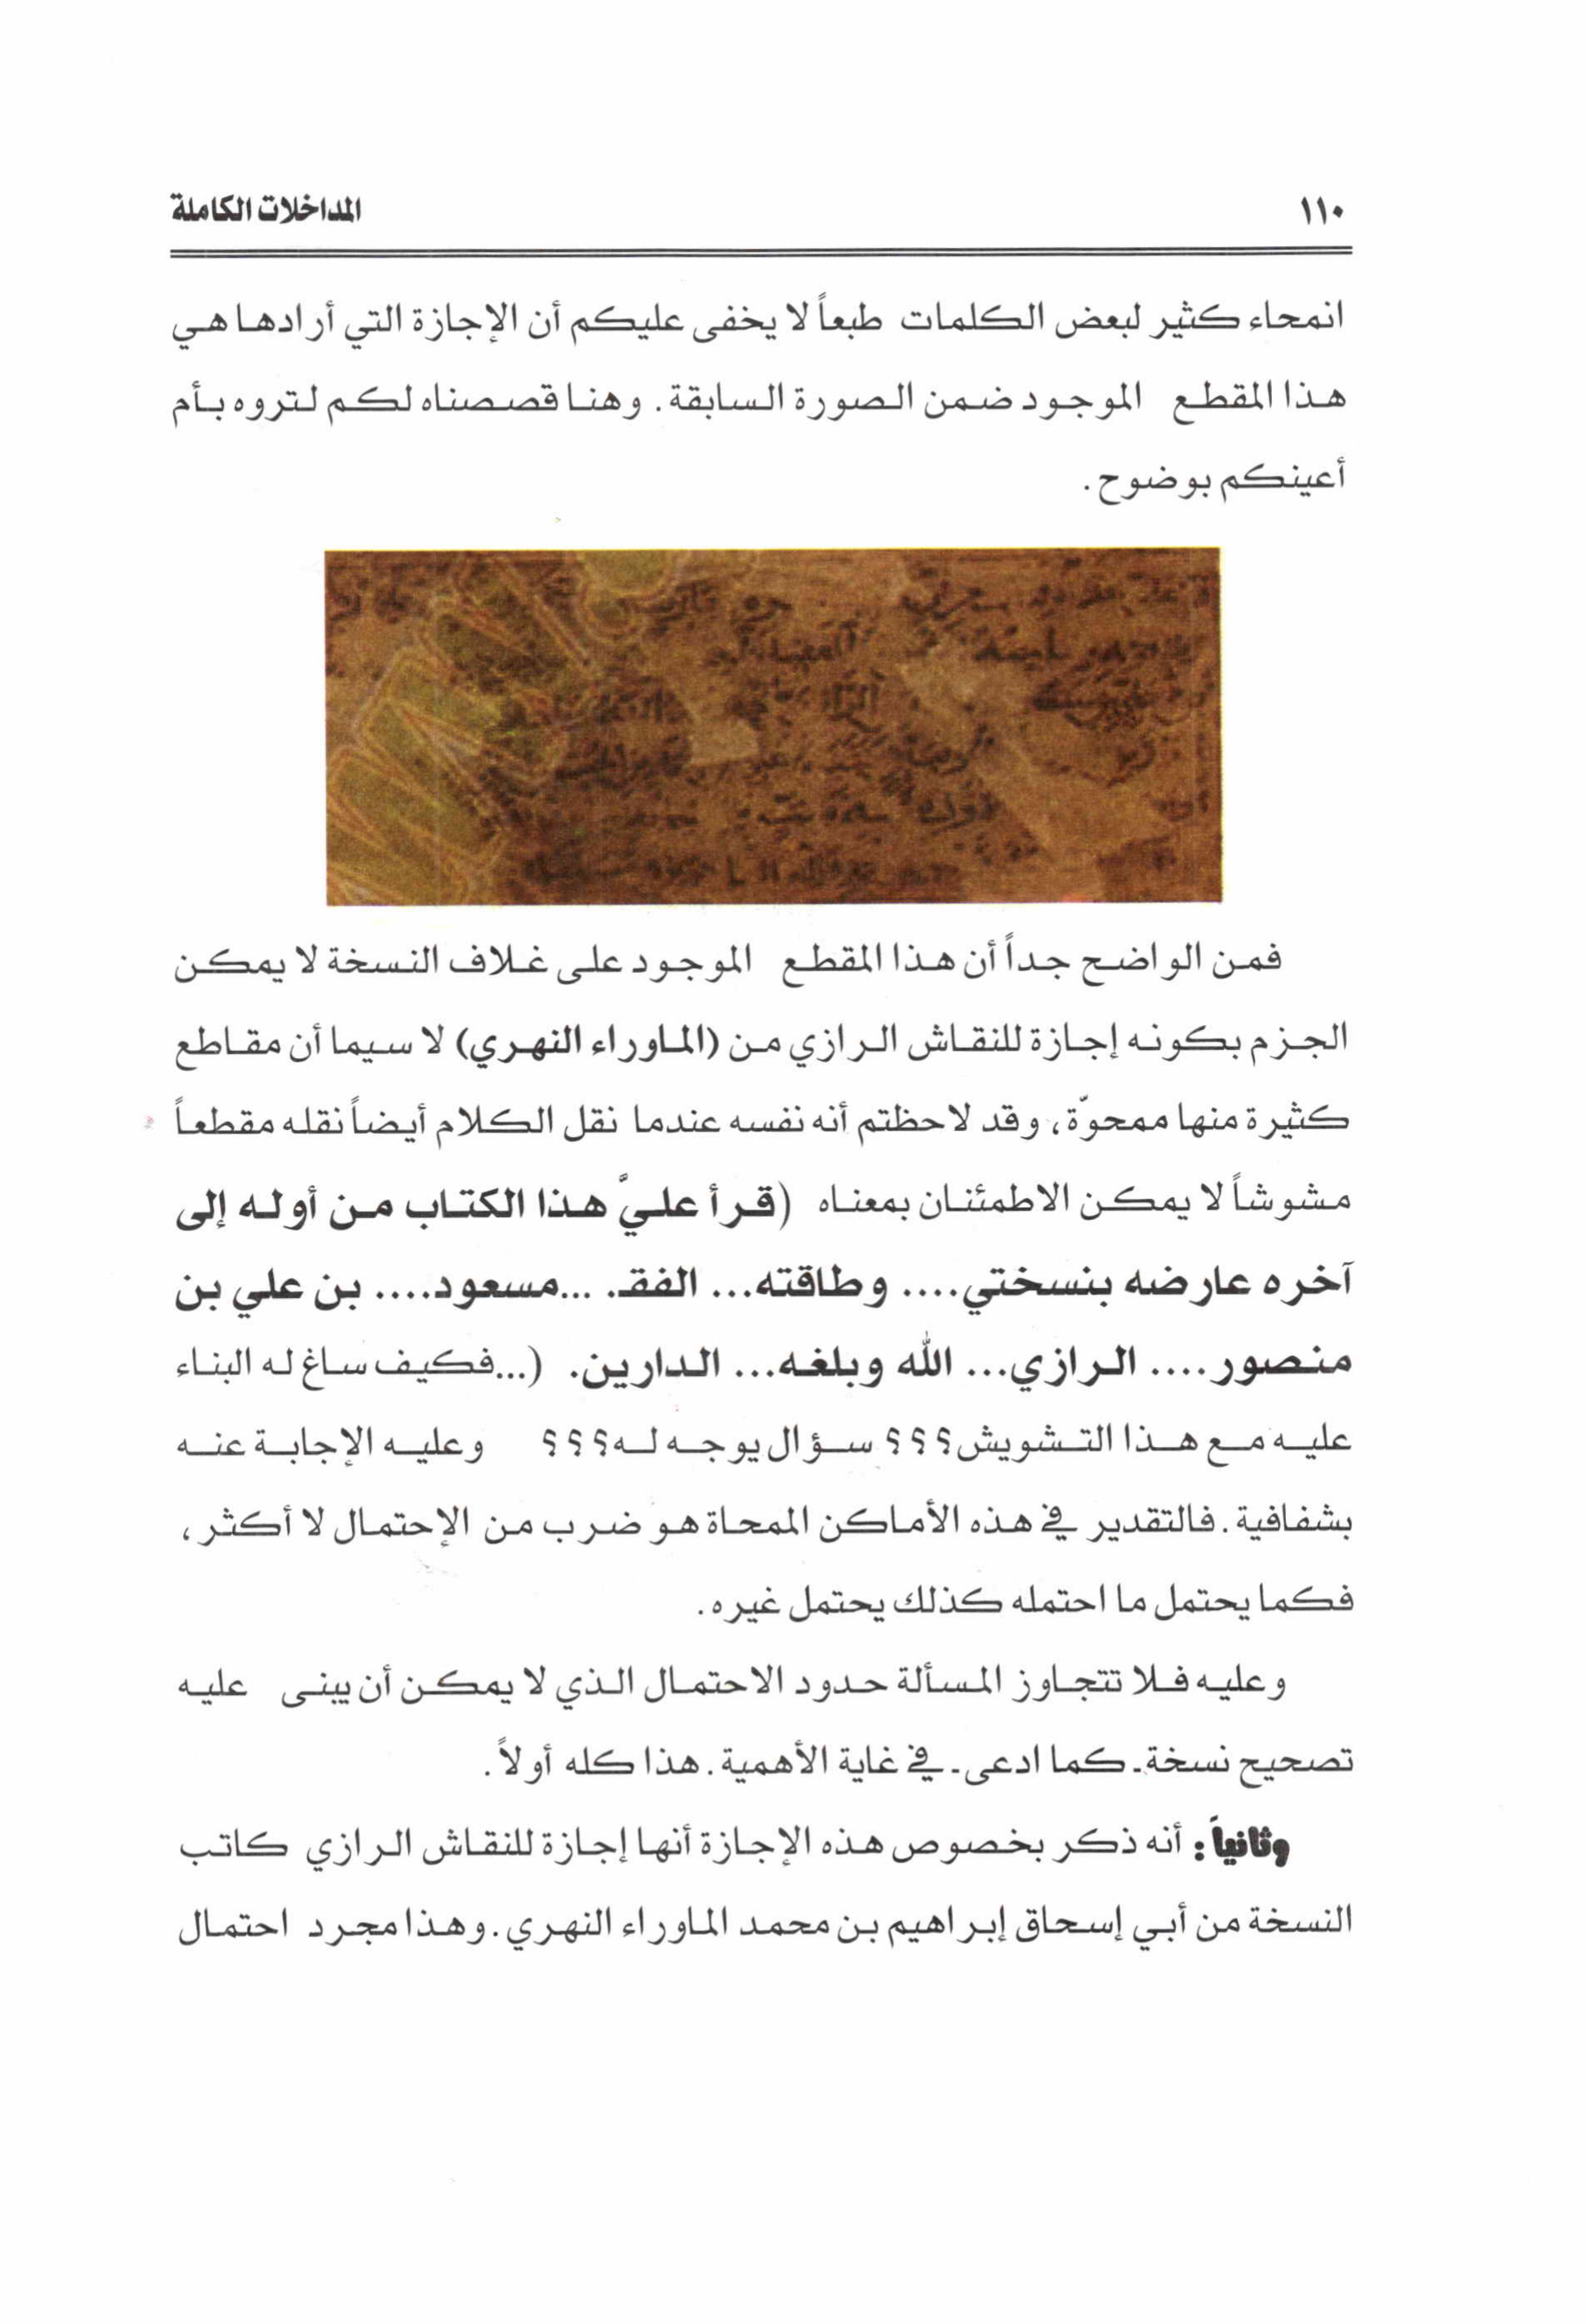 ١١٠
المداخلات الكاملة
انمحاء كثير لبعض الكلمات طبعاً لا يخفى عليكم أن الإجازة التي أرادها هي
هذا المقطع الموجود ضمن الصورة السابقة. وهنا قصصناه لكم لتروه بأم
أعينكم بوضوح.
فمن الواضح جداً أن هذا المقطع الموجود على غلاف النسخة لا يمكن
الجزم بكونه إجازة للنقاش الرازي من (الماوراء النهري) لا سيما أن مقاطع
كثيرة منها ممحوّة، وقد لاحظتم أنه نفسه عندما نقل الكلام أيضاً نقله مقطعاً
مشوشاً لا يمكن الاطمئنان بمعناه (قرأ عليَّ هذا الكتاب من أوله إلى
آخره عارضه بنسختي.... وطاقته... الفقـ. ...مسعود.... بن علي بن
منصور.... الرازي... الله وبلغه... الدارين. (...فكيف ساغ له البناء
عليه مع هذا التشويش؟؟؟ سؤال يوجه له؟؟؟ وعليه الإجابة عنه
بشفافية. فالتقدير في هذه الأماكن المحاة هو ضرب من الإحتمال لا أكثر،
فكما يحتمل ما احتمله كذلك يحتمل غيره.
وعليه فلا تتجاوز المسألة حدود الاحتمال الذي لا يمكن أن يبنى عليه
تصحيح نسخة ـ كما ادعى ـ في غاية الأهمية. هذا كله أولاً.
وثانياً: أنه ذكر بخصوص هذه الإجازة أنها إجازة للنقاش الرازي كاتب
النسخة من أبي إسحاق إبراهيم بن محمد الماوراء النهري. وهذا مجرد احتمال